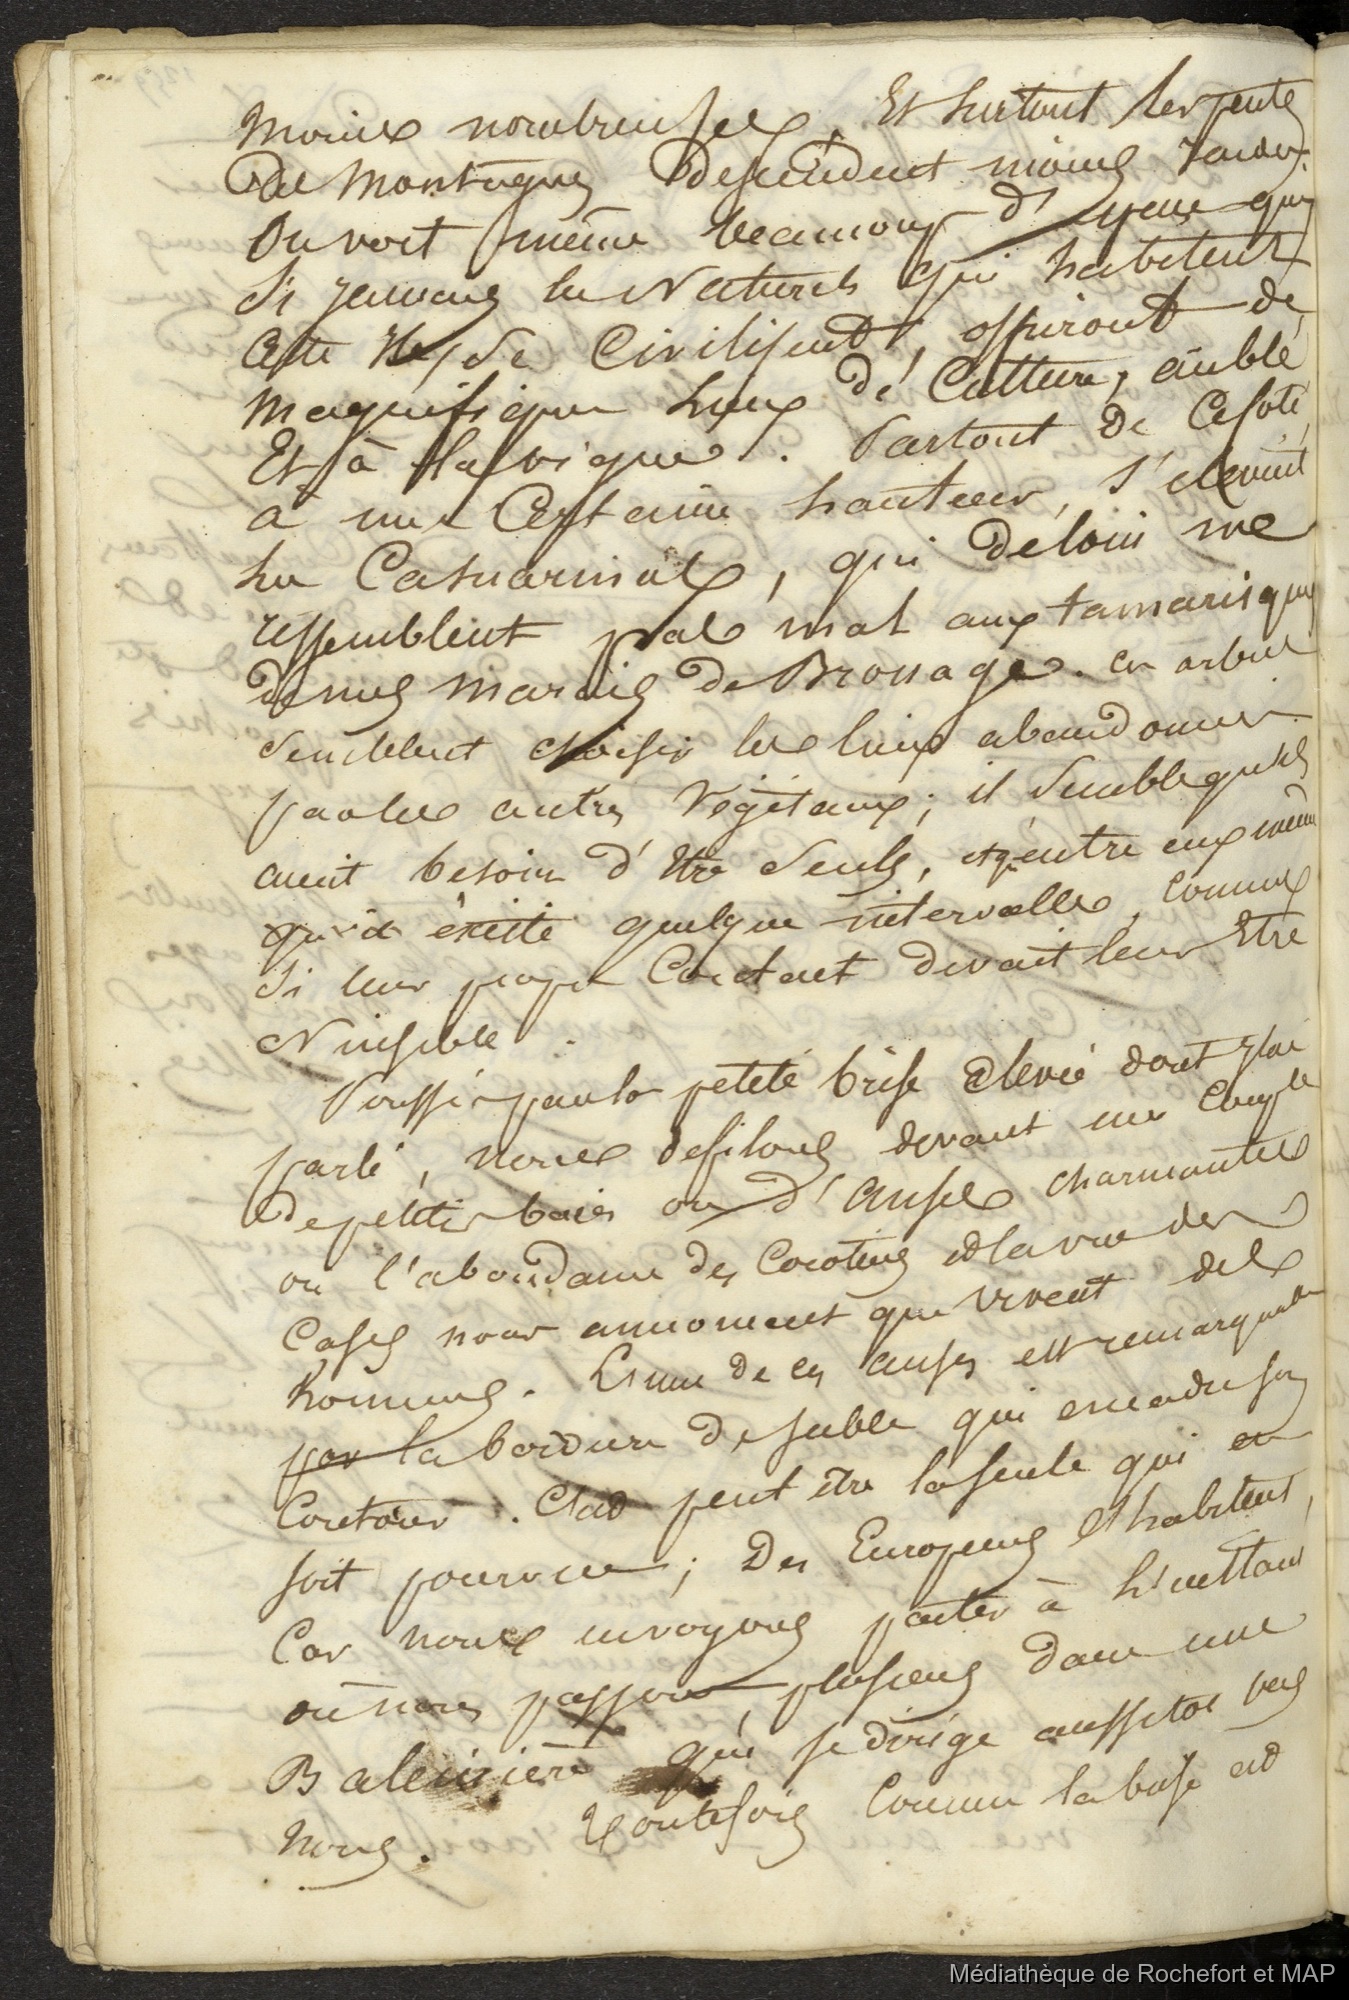 moins nombreuses, Et surtout les pente
De Montagnes Descendent moins raides.
On voit même beaucoup d' qui
Si jamais les Naturels qui habitent
Cette Ile, se Civilisent, offriront de
magnifique lieux de Culture, au blé
Et à la vigne. Partout de Ce coté,
à une Certaine hauteur, s'elevent
les Casuarinas, qui de loin me
ressemblent pas mal aux tamarisques
de nos marais de Brouage. Ces arbres
semblent choisir les lieux abandonnés
par les autres Végétaux; il semble qu'ils
aient besoin d'être seuls, et qu'entre eux même
existe quelque intervalle, comme
Si leur propre Contact devait leur Etre
Nuisible.
Poussés par la petite brise Elevée dont j'ai
parlé, nous défilons devant une Couple
De petites baies ou d'anses charmantes
ou l'abondance des Cocotiers et la vue des
Cases nous annoncent que vivent des
hommes. L'une de ces anses est remarquable
par la bordure de sable qui encadre son
Contour. C'est peut être la seule qui en
soit pourvue; Des Européens l'habitent,
Car nous envoyons partir à l'instant
où nous passons, plusieurs dans une
Baleinière qui se dirige aussitot vers
Nous. Toutefois Comme la brise est
Médiathèque de Rochefort et MAP